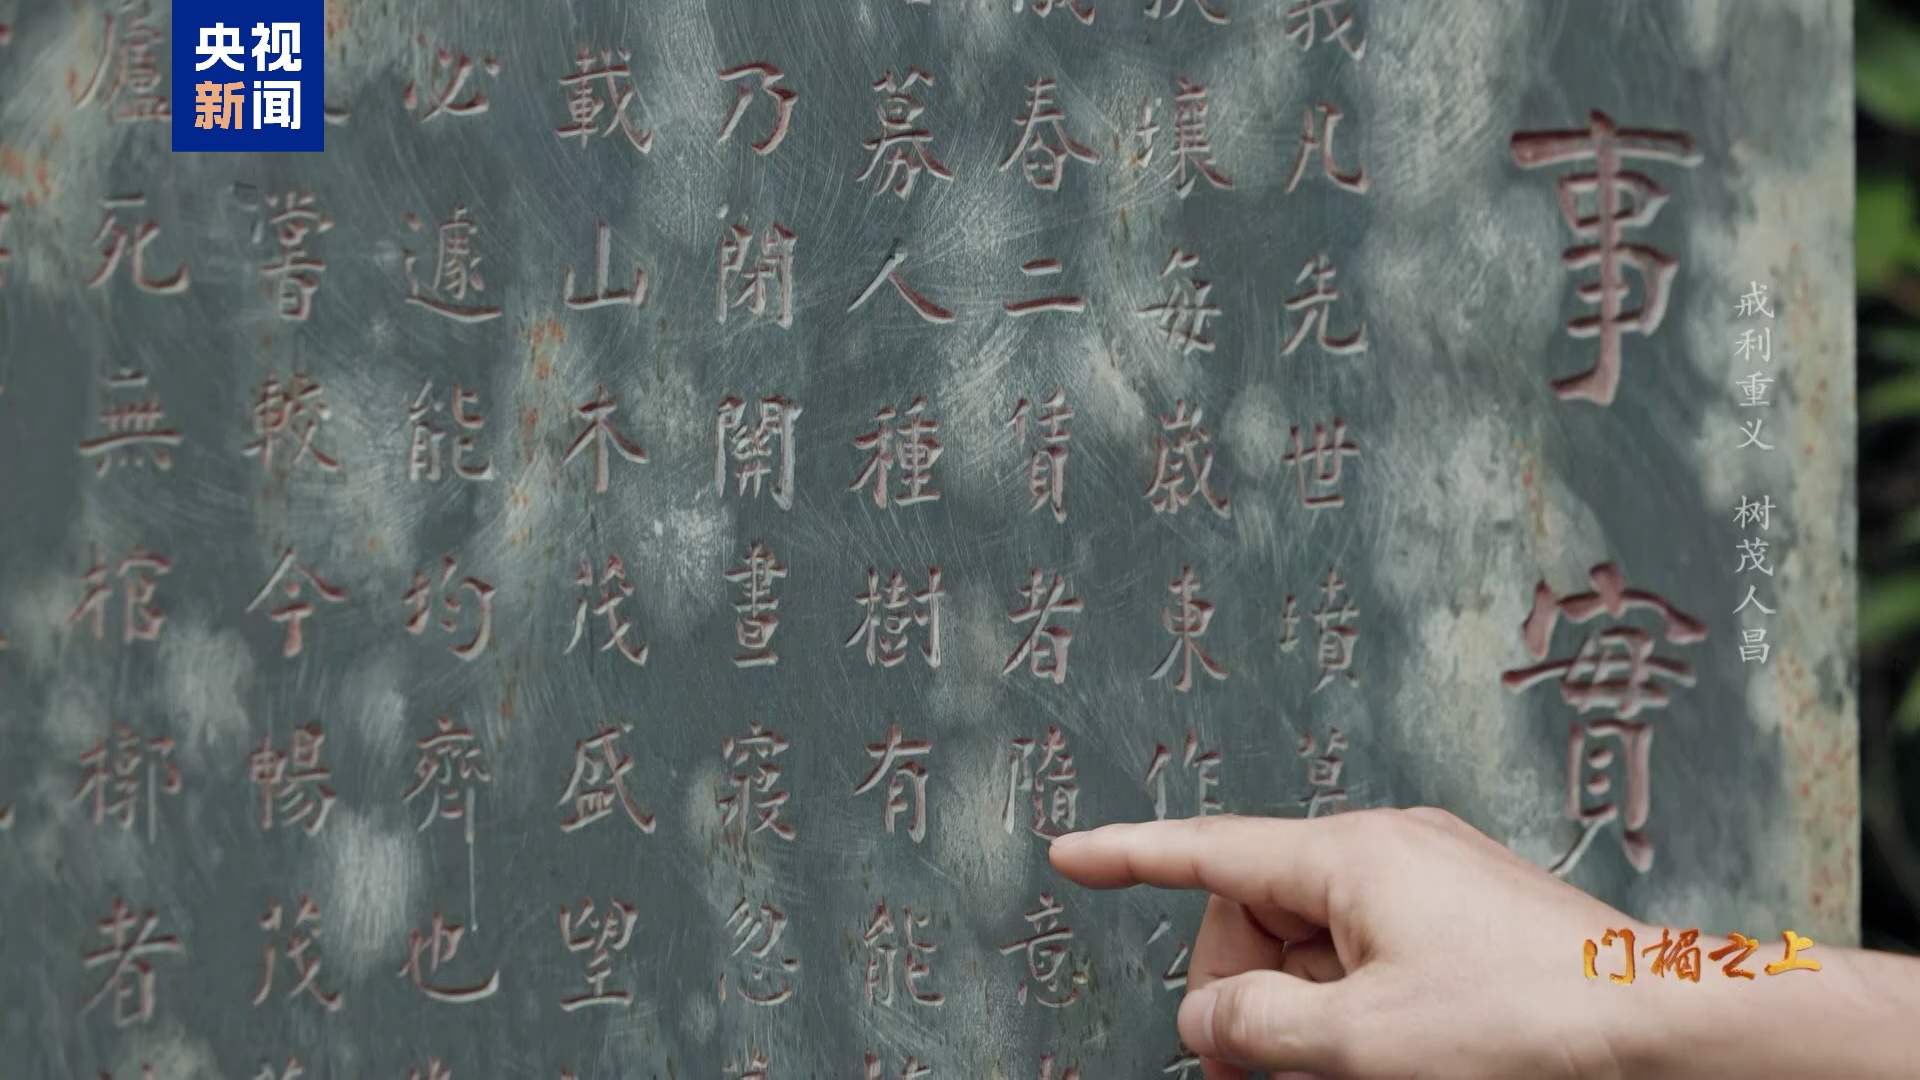 央视
新闻
事實
戒利重义 树茂人昌
我凡先世墳墓
壤每歲東作
春二賃者隨意
募人種樹有能
乃閉關晝寢忽
載山木茂盛望
必遽能均齊也
嘗較今暢茂
廬死無棺槨者
门楣之上